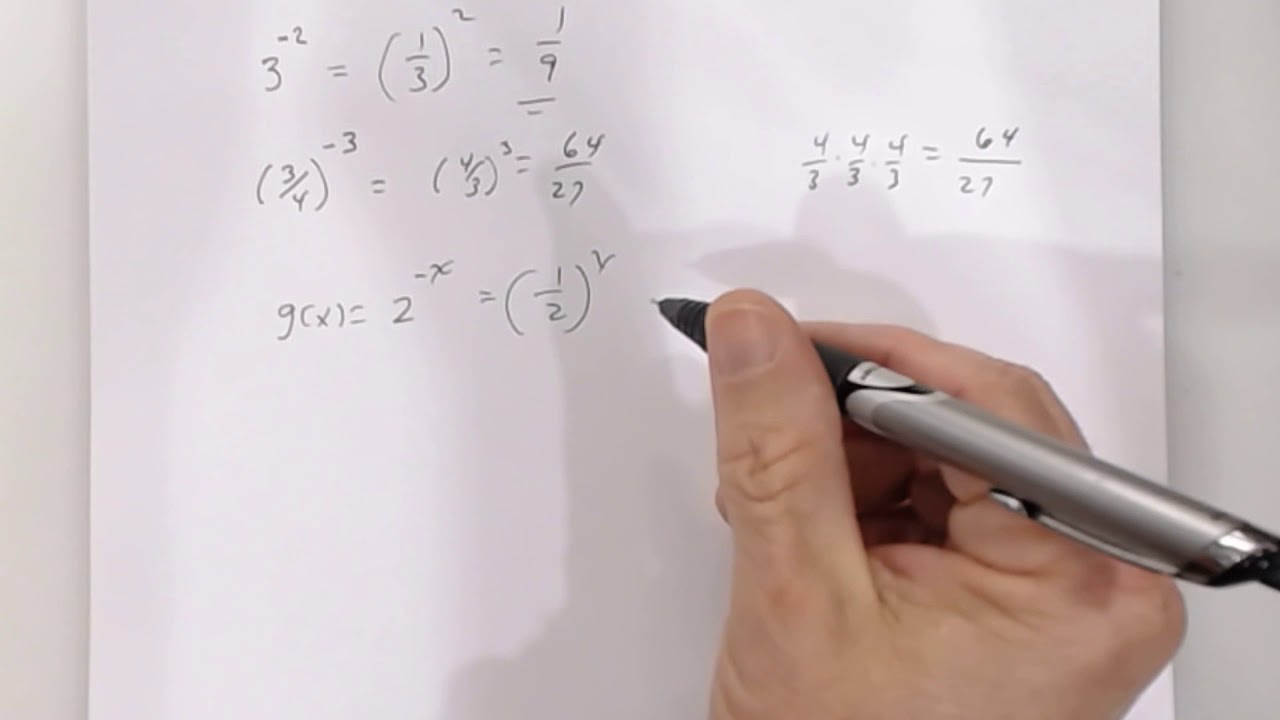 3^{-2} = (1/3)^2 = 1/9
(3/4)^{-3} = (4/3)^3 = 64/27
4/3 · 4/3 · 4/3 = 64/27
g(x) = 2^{-x} = (1/2)^x